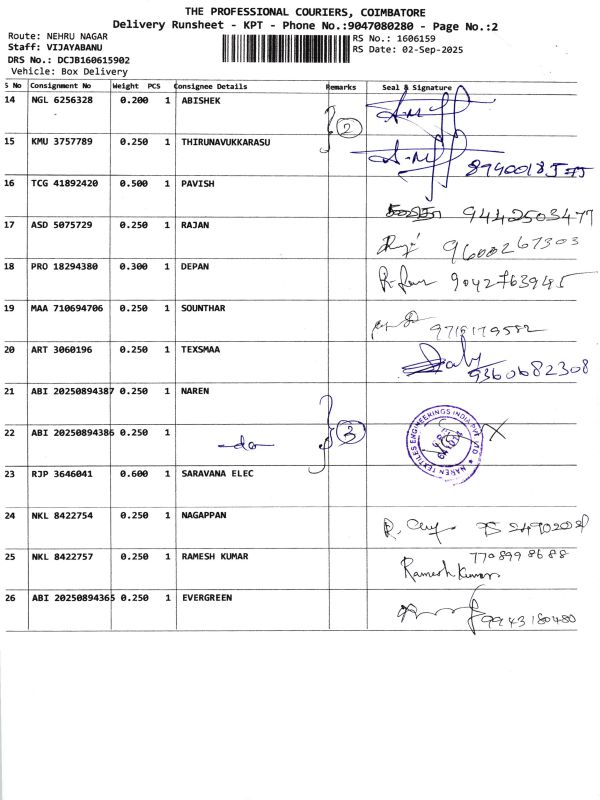 THE PROFESSIONAL COURIERS, COIMBATORE
Delivery Runsheet - KPT - Phone No.:9047080280 - Page No.:2
Route: NEHRU NAGAR
Staff: VIJAYABANU
DRS No.: DCJB160615902
Vehicle: Box Delivery
RS No.: 1606159
RS Date: 02-Sep-2025
S No Consignment No Weight PCS Consignee Details Remarks Seal & Signature
14 NGL 6256328 0.200 1 ABISHEK
2
15 KMU 3757789 0.250 1 THIRUNAVUKKARASU
16 TCG 41892420 0.500 1 PAVISH 9442503477
17 ASD 5075729 0.250 1 RAJAN 9600267303
18 PRO 18294380 0.300 1 DEPAN 9042763945
19 MAA 710694706 0.250 1 SOUNTHAR 9715179582
20 ART 3060196 0.250 1 TEXSMAA 9360682308
21 ABI 20250894387 0.250 1 NAREN
3
22 ABI 20250894386 0.250 1 -do-
NAREN TEXTILES ENGINEERINGS INDIA PVT LTD
23 RJP 3646041 0.600 1 SARAVANA ELEC
24 NKL 8422754 0.250 1 NAGAPPAN
25 NKL 8422757 0.250 1 RAMESH KUMAR 7708998688
Ramesh Kumar
26 ABI 20250894365 0.250 1 EVERGREEN 9943180480